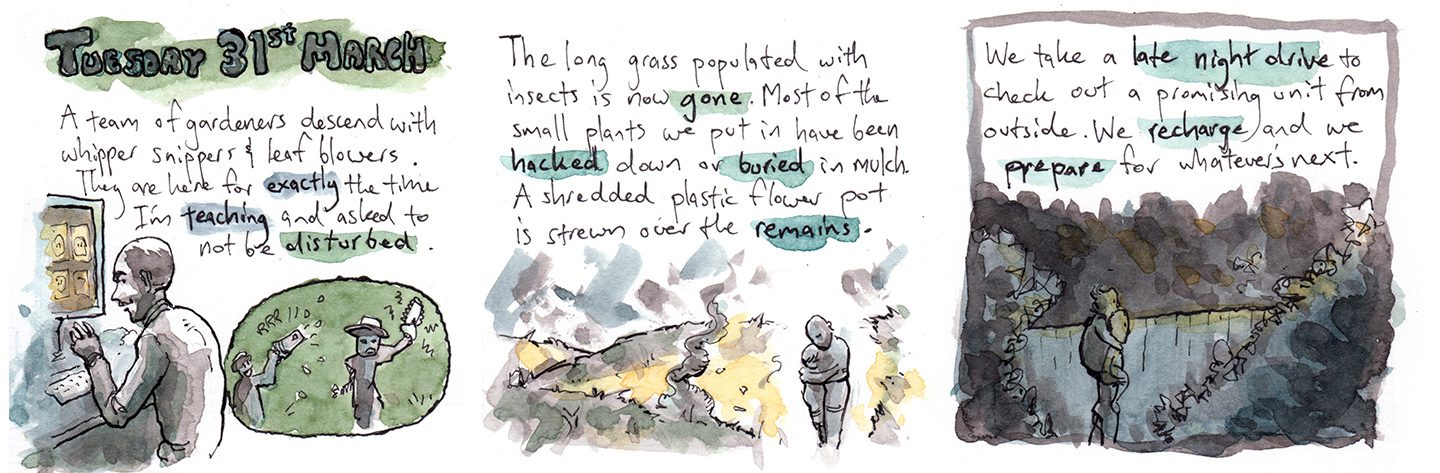 TUESDAY 31st MARCH
A team of gardeners descend with
whipper snippers & leaf blowers.
They are here for exactly the time
I'm teaching and asked to
not be disturbed.
RRR
The long grass populated with
insects is now gone. Most of the
small plants we put in have been
hacked down or buried in mulch.
A shredded plastic flower pot
is strewn over the remains.
We take a late night drive to
check out a promising unit from
outside. We recharge and we
prepare for whatever's next.